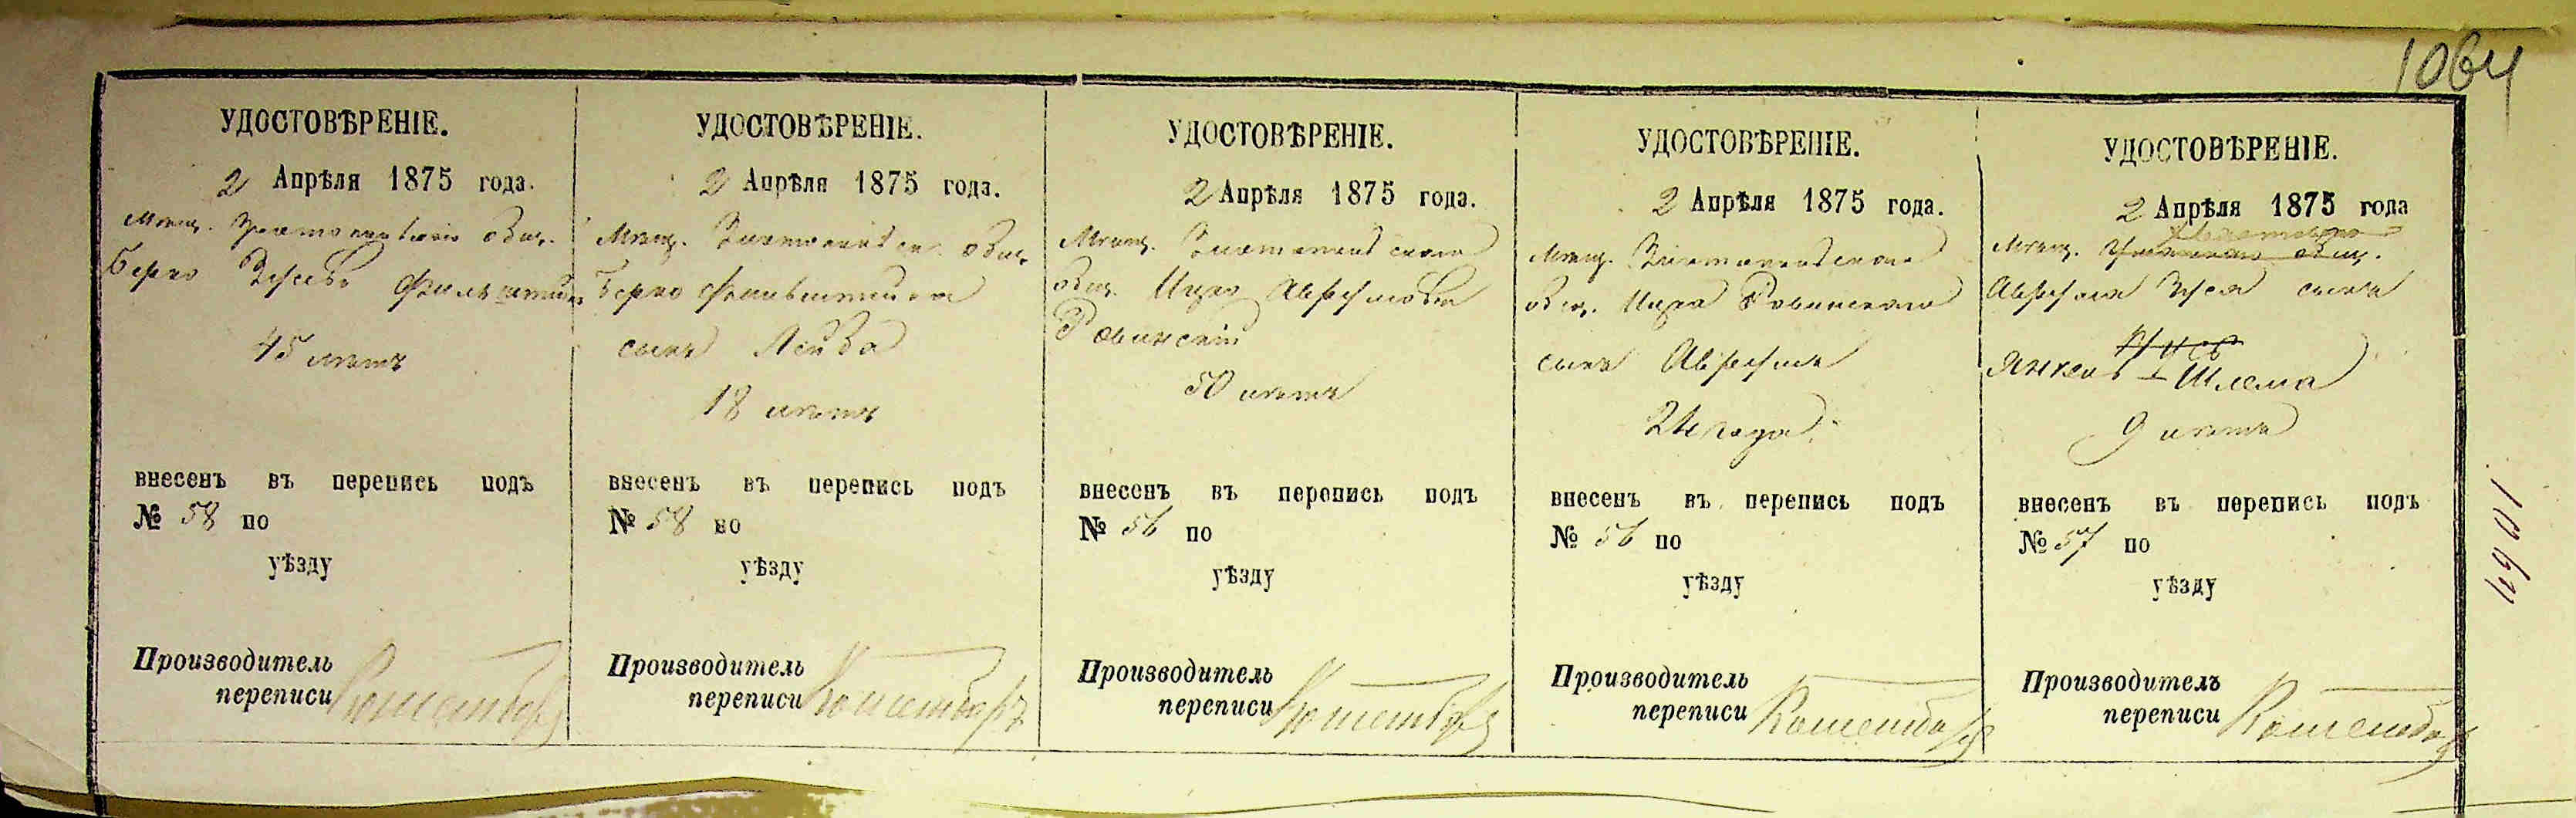 1064
УДОСТОВѢРЕНІЕ.
2 Апрѣля 1875 года.
Мѣщ. общ.
Берко
45 лѣтъ
внесенъ въ перепись подъ
№ 58 по
уѣзду
Производитель
переписи
УДОСТОВѢРЕНІЕ.
2 Апрѣля 1875 года.
Мѣщ. общ.
Берко
сынъ Лейба
18 лѣтъ
внесенъ въ перепись подъ
№ 58 по
уѣзду
Производитель
переписи
УДОСТОВѢРЕНІЕ.
2 Апрѣля 1875 года.
Мѣщ.
общ. Ицко
Равинскій
50 лѣтъ
внесенъ въ перепись подъ
№ 56 по
уѣзду
Производитель
переписи
УДОСТОВѢРЕНІЕ.
2 Апрѣля 1875 года.
Мѣщ.
общ. Ицка Равинскаго
сынъ Аврумъ
24 года
внесенъ въ перепись подъ
№ 56 по
уѣзду
Производитель
переписи
УДОСТОВѢРЕНІЕ.
2 Апрѣля 1875 года
Мѣщ. общ.
сынъ
Янкель Шлема
9 лѣтъ
внесенъ въ перепись подъ
№ 57 по
уѣзду
Производитель
переписи
1064